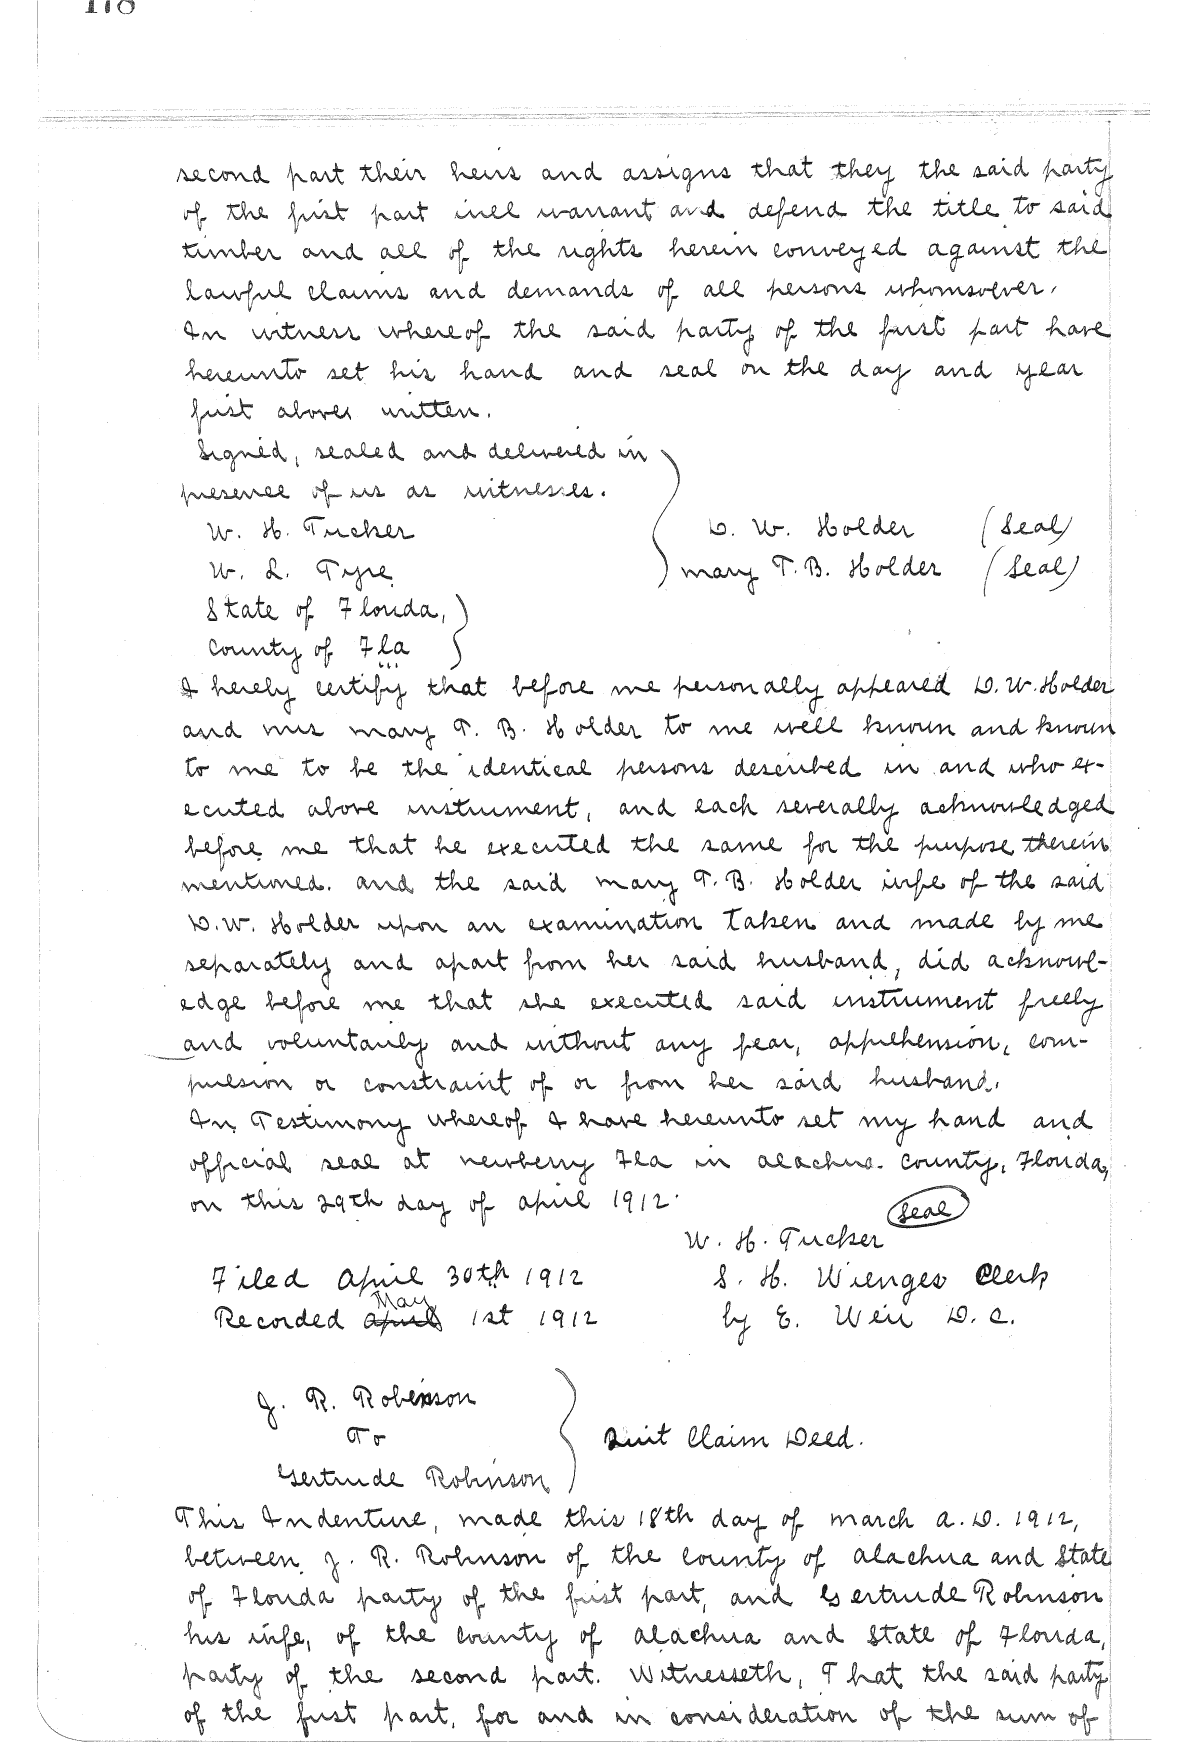 178
second part their heirs and assigns that they the said party
of the first part will warrant and defend the title to said
timber and all of the rights herein conveyed against the
lawful claims and demands of all persons whomsoever.
In witness whereof the said party of the first part have
hereunto set his hand and seal on the day and year
first above written.
Signed, sealed and delivered in
presence of us as witnesses.
W. H. Tucker
D. W. Holder (Seal)
W. L. Tyre
Mary T. B. Holder (Seal)
State of Florida,
County of Fla
I hereby certify that before me personally appeared D. W. Holder
and mrs mary T. B. Holder to me well known and known
to me to be the identical persons described in and who ex-
ecuted above instrument, and each severally acknowledged
before me that he executed the same for the purpose therein
mentioned. and the said mary T. B. Holder wife of the said
D. W. Holder upon an examination taken and made by me
separately and apart from her said husband, did acknowl-
edge before me that she executed said instrument freely
and voluntarily and without any fear, apprehension, com-
pulsion or constraint of or from her said husband.
In Testimony whereof I have hereunto set my hand and
official seal at newberry Fla in alachua county, Florida,
on this 29th day of april 1912.
Seal
W. H. Tucker
Filed April 30th 1912
S. H. Wienges Clerk
May
Recorded april 1st 1912
by E. Weir D. C.
J. R. Robinson
To
Quit Claim Deed.
Gertrude Robinson
This Indenture, made this 18th day of march a. D. 1912,
between J. R. Robinson of the county of alachua and State
of Florida party of the first part, and Gertrude Robinson
his wife, of the county of alachua and State of Florida,
party of the second part. Witnesseth, That the said party
of the first part, for and in consideration of the sum of